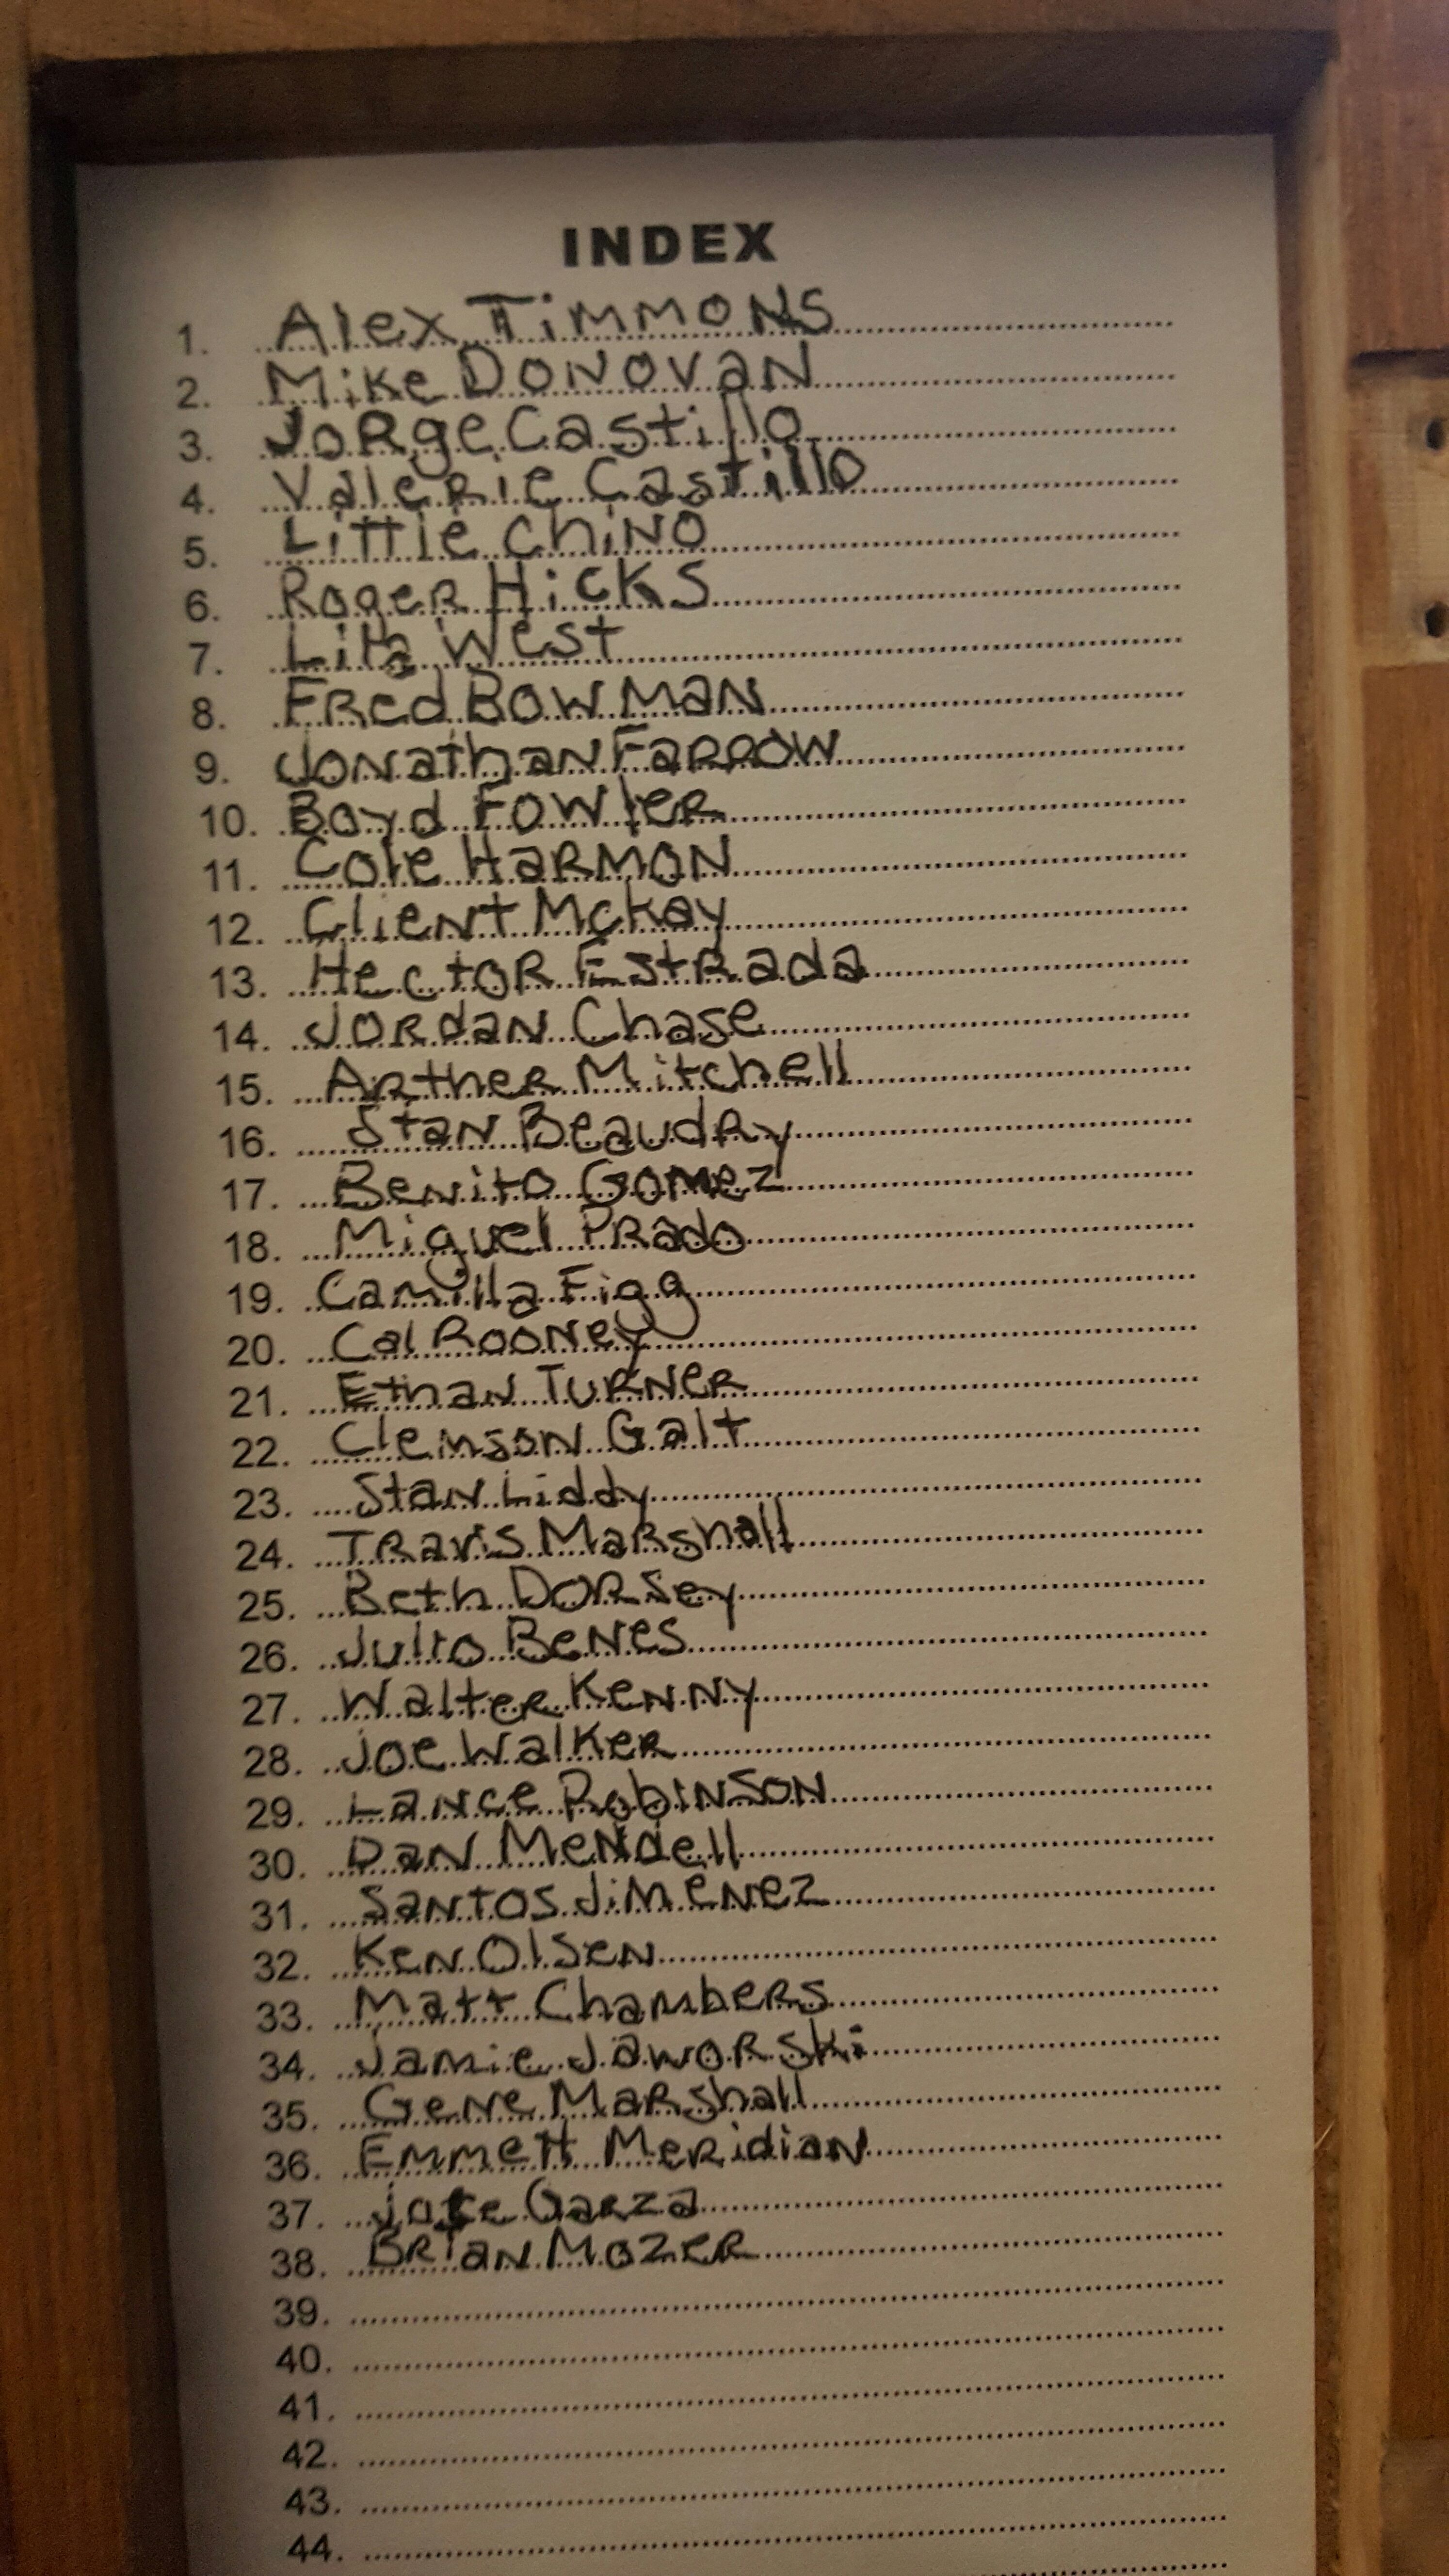 INDEX
1. Alex Timmons
2. Mike Donovan
3. Jorge Castillo
4. Valerie Castillo
5. Little Chino
6. Roger Hicks
7. Lila West
8. Fred Bowman
9. Jonathan Farrow
10. Boyd Fowler
11. Cole Harmon
12. Client McKay
13. Hector Estrada
14. Jordan Chase
15. Arther Mitchell
16. Stan Beaudry
17. Benito Gomez
18. Miguel Prado
19. Camilla Figg
20. Cal Rooney
21. Ethan Turner
22. Clemson Galt
23. Stan Liddy
24. Travis Marshall
25. Beth Dorsey
26. Julio Benes
27. Walter Kenny
28. Joe Walker
29. Lance Robinson
30. Dan Mendell
31. Santos Jimenez
32. Ken Olsen
33. Matt Chambers
34. Jamie Jaworski
35. Gene Marshall
36. Emmett Meridian
37. Jose Garza
38. Brian Mozer
39.
40.
41.
42.
43.
44.